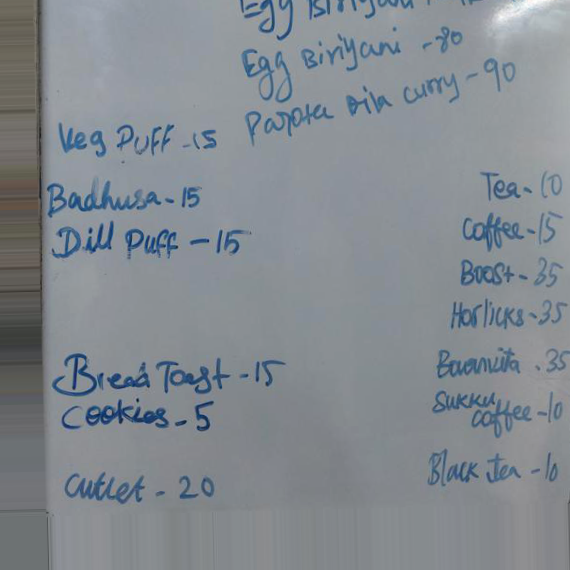 Egg Biriyani
Egg Biriyani - 80
Parota with curry - 90
Veg Puff - 15
Badhusa - 15
Dill Puff - 15
Bread Toast - 15
Cookies - 5
Cutlet - 20
Tea - 10
Coffee - 15
Boost - 35
Horlicks - 35
Bournvita . 35
Sukku
coffee - 10
Black Tea - 10